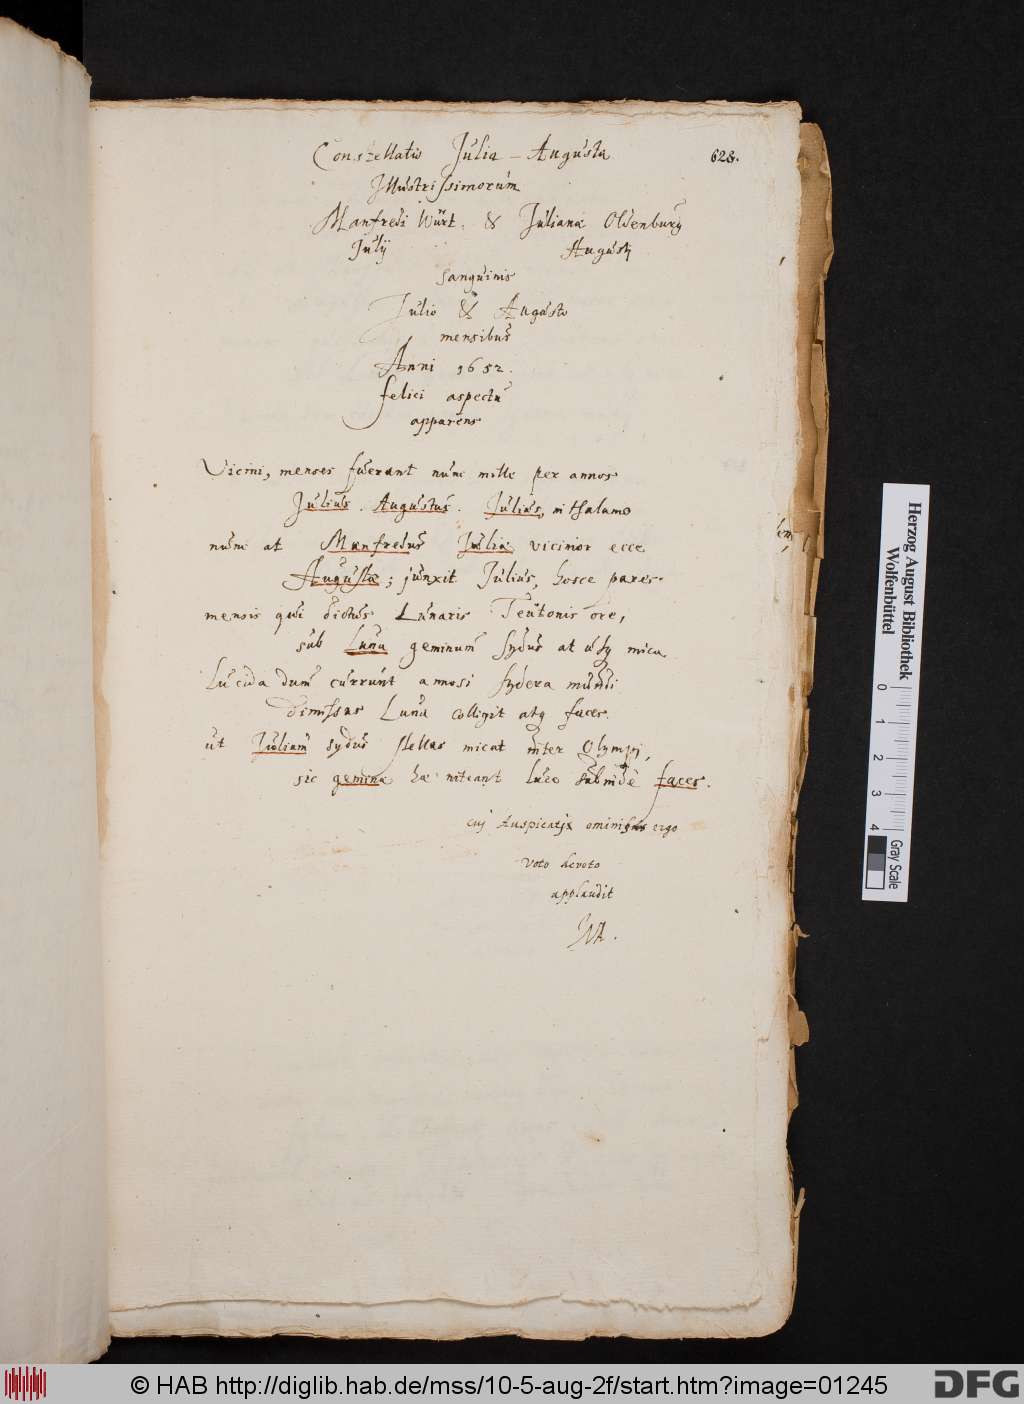 Constellatio Julia-Augusta
628.
Illustrissimorum
Manfredi Würt. & Julianæ Oldenburg
Julij Augusti
sanguinis
Julio & Augusto
mensibus
Anni 1652.
felici aspectu
apparens
Vicini, menses fuerant nunc mille per annos
Julius. Augustus. Julius, in thalamo
nunc at Manfredus Julia vicinior ecce
Augusta; junxit Julius, hosce pares.
mensis qui dictus Lunaris Teutonis ore,
sub Luna geminum sydus at mica
Lucida dum currunt annosi sydera mundi
dimissas Luna colligit atq faces.
ut Julium sydus stellas micat inter Olympi,
sic geminæ hæ niteant luce subinde faces.
cuj Auspicatis ergo
voto devoto
applaudit
Herzog August Bibliothek
Wolfenbüttel
0 1 2 3 4
Gray Scale
© HAB http://diglib.hab.de/mss/10-5-aug-2f/start.htm?image=01245
DFG